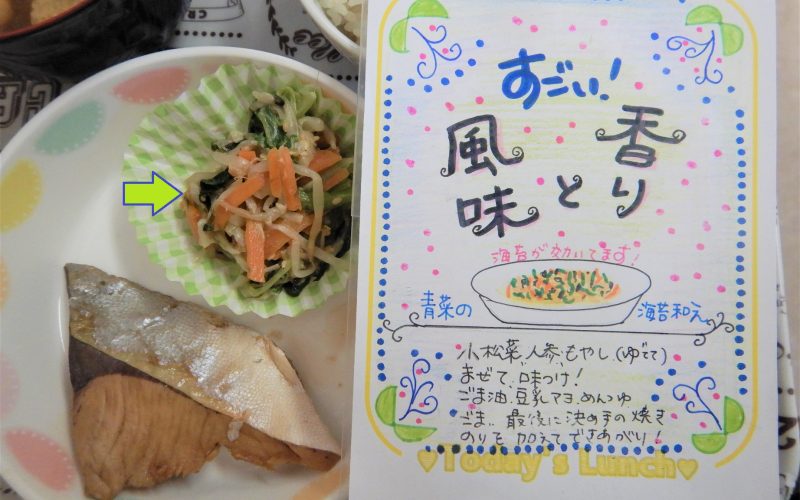 すごい!
香りと
風味
海苔が効いてます!
青菜の
海苔和え
小松菜、人参、もやし、(ゆでて)
まぜて、味つけ!
ごま油、豆乳マヨ、めんつゆ
ごま、最後に決め手の焼き
のりを加えてできあがり!
Today's Lunch